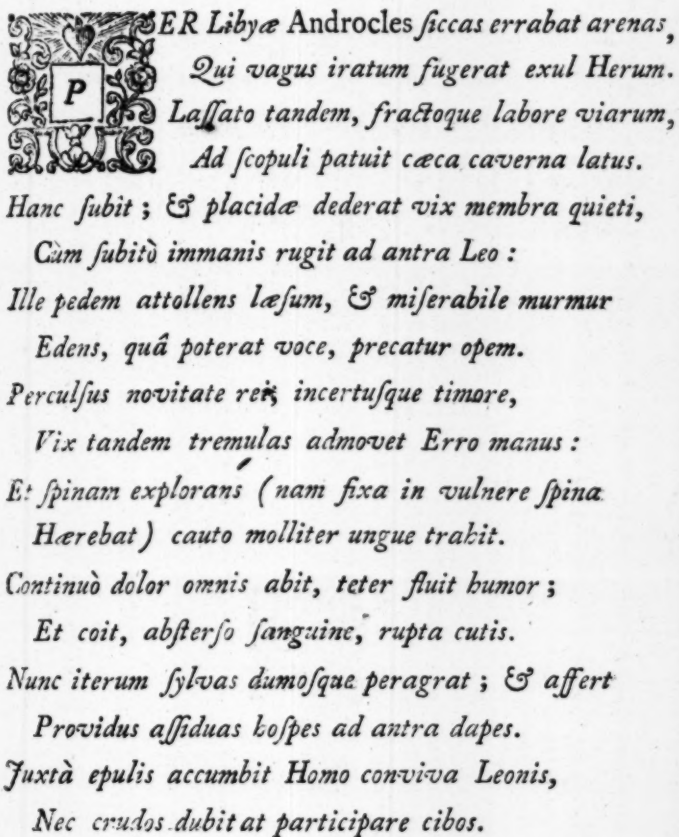 PER Libyæ Androcles ſiccas errabat arenas,
Qui vagus iratum fugerat exul Herum.
Laſſato tandem, fractoque labore viarum,
Ad ſcopuli patuit cæca caverna latus.
Hanc ſubit ; & placidæ dederat vix membra quieti,
Cùm ſubitò immanis rugit ad antra Leo :
Ille pedem attollens læſum, & miſerabile murmur
Edens, quâ poterat voce, precatur opem.
Perculſus novitate rei, incertuſque timore,
Vix tandem tremulas admovet Erro manus :
Et ſpinam explorans (nam fixa in vulnere ſpina
Hærebat) cauto molliter ungue trahit.
Continuò dolor omnis abit, teter fluit humor ;
Et coit, abſterſo ſanguine, rupta cutis.
Nunc iterum ſylvas dumoſque peragrat ; & affert
Providus aſſiduas hoſpes ad antra dapes.
Juxtà epulis accumbit Homo conviva Leonis,
Nec crudos dubitat participare cibos.